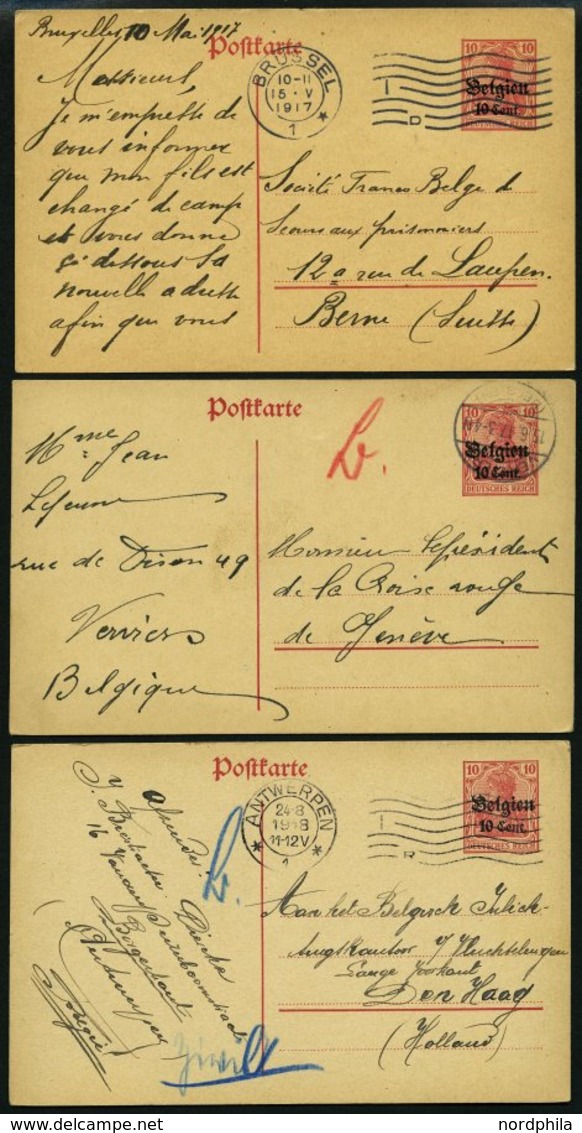 Bruxelles 10 Mai 1917
Postkarte
BRÜSSEL
10-11
15·V
1917
1
10 10
Belgien
10 Cent.
DEUTSCHES REICH
Messieurs,
Je m'empresse de
vous informer
que mon fils est
changé de camp
et vous donne
ci dessous sa
nouvelle adresse
afin que vous
Société Franco Belge de
Secours aux prisonniers
12a rue de Laupen.
Berne (Suisse)
Postkarte
10
Belgien
10 Cent.
DEUTSCHES REICH
L.
Mme Jean
Lejeune
rue de Dison 49
Verviers
Belgique
Monsieur le président
de la Croix rouge
de Genève
Postkarte
ANTWERPEN
24·8
1918
11-12V
1
10 10
Belgien
10 Cent.
DEUTSCHES REICH
L.
Aan het Belgisch
Lange Voorhout
Den Haag
(Holland)
Borgerhout
(Antwerpen)
België
www.delcampe.net
nordphila